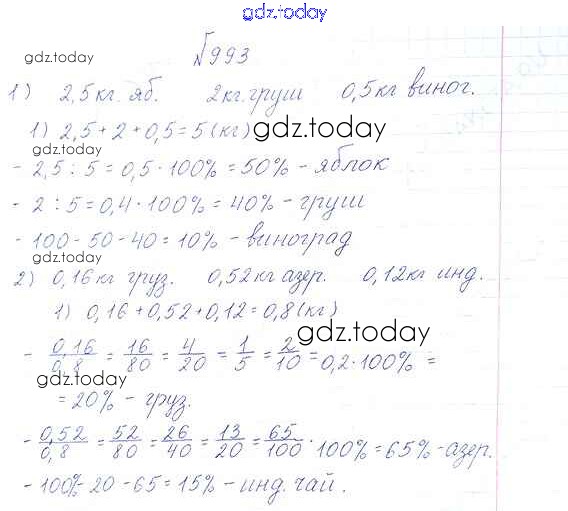 gdz.today
№993
gdz.today
1) 2,5 кг. яб. 2 кг. груш 0,5 кг виног.
1) 2,5 + 2 + 0,5 = 5 (кг) gdz.today
gdz.today
- 2,5 : 5 = 0,5 · 100% = 50% - яблок
- 2 : 5 = 0,4 · 100% = 40% - груш
- 100 - 50 - 40 = 10% - виноград
gdz.today
2) 0,16 кг груз. 0,52 кг азер. 0,12 кг инд.
1) 0,16 + 0,52 + 0,12 = 0,8 (кг)
gdz.today
- 0,16/0,8 = 16/80 = 4/20 = 1/5 = 2/10 = 0,2 · 100% =
gdz.today
= 20% - груз.
- 0,52/0,8 = 52/80 = 26/40 = 13/20 = 65/100 · 100% = 65% - азер.
- 100% - 20 - 65 = 15% - инд. чай.
gdz.today